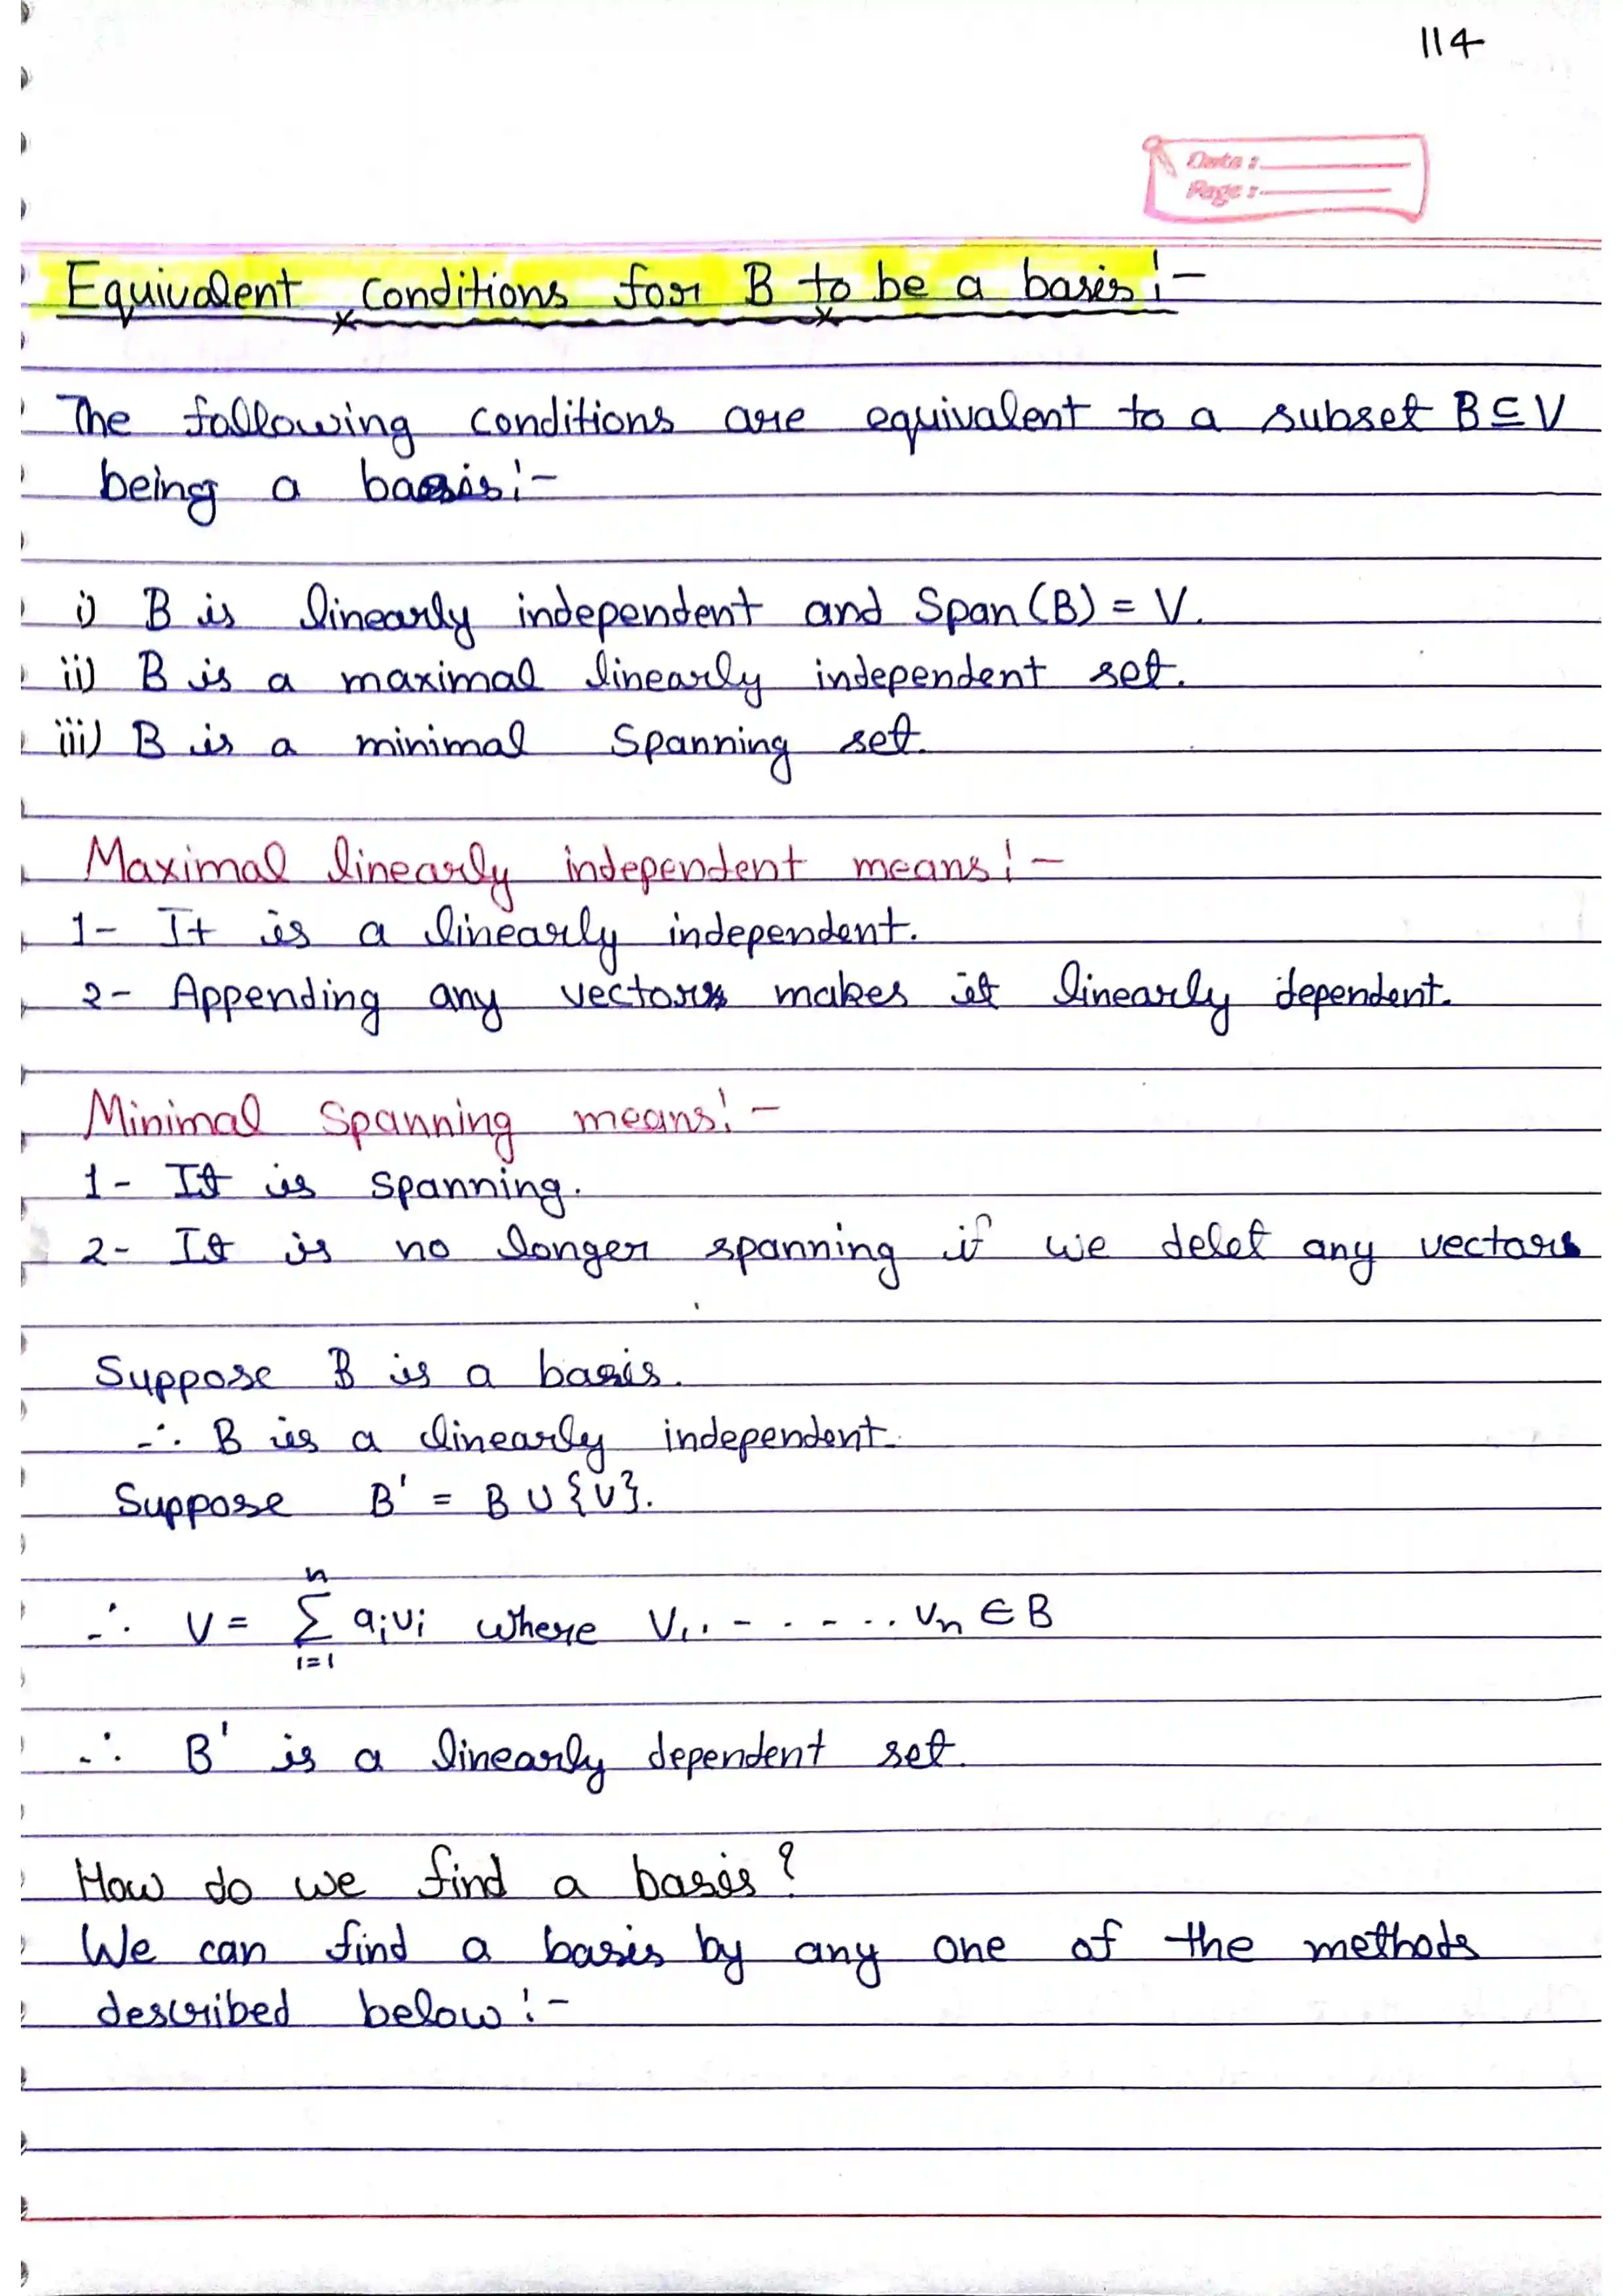 114
Date :
Page :
Equivalent conditions for B to be a basis :-
The following conditions are equivalent to a subset B ⊆ V
being a basis :-
i) B is linearly independent and Span (B) = V.
ii) B is a maximal linearly independent set.
iii) B is a minimal Spanning set.
Maximal linearly independent means :-
1- It is a linearly independent.
2- Appending any vectors makes it linearly dependent.
Minimal Spanning means :-
1- It is spanning.
2- It is no longer spanning if we delet any vectors
Suppose B is a basis.
∴ B is a linearly independent.
Suppose B' = B ∪ {v}.
∴ v = ∑_{i=1}^{n} a_i v_i where v_1, . - . - . . v_n ∈ B
∴ B' is a linearly dependent set.
How do we find a basis ?
We can find a basis by any one of the methods
described below :-